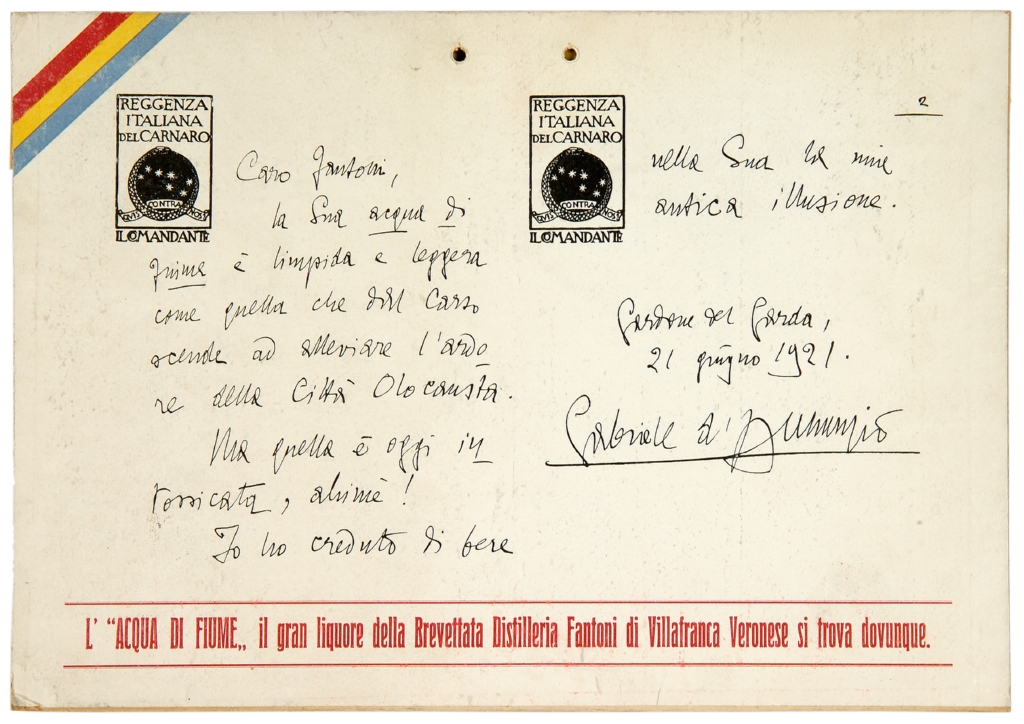 REGGENZA
ITALIANA
DEL CARNARO
QVIS CONTRA NOS
IL COMANDANTE
Caro Fantoni,
la Sua acqua di
Fiume è limpida e leggera
come quella che dal Carso
scende ad alleviare l'ardo
re della Città Olocausta.
Ma quella è oggi in
tossicata, ahimè!
Io ho creduto di bere
REGGENZA
ITALIANA
DEL CARNARO
QVIS CONTRA NOS
IL COMANDANTE
2
nella Sua la mia
antica illusione.
Gardone del Garda,
21 giugno 1921.
Gabriele d'Annunzio
L' "ACQUA DI FIUME„ il gran liquore della Brevettata Distilleria Fantoni di Villafranca Veronese si trova dovunque.